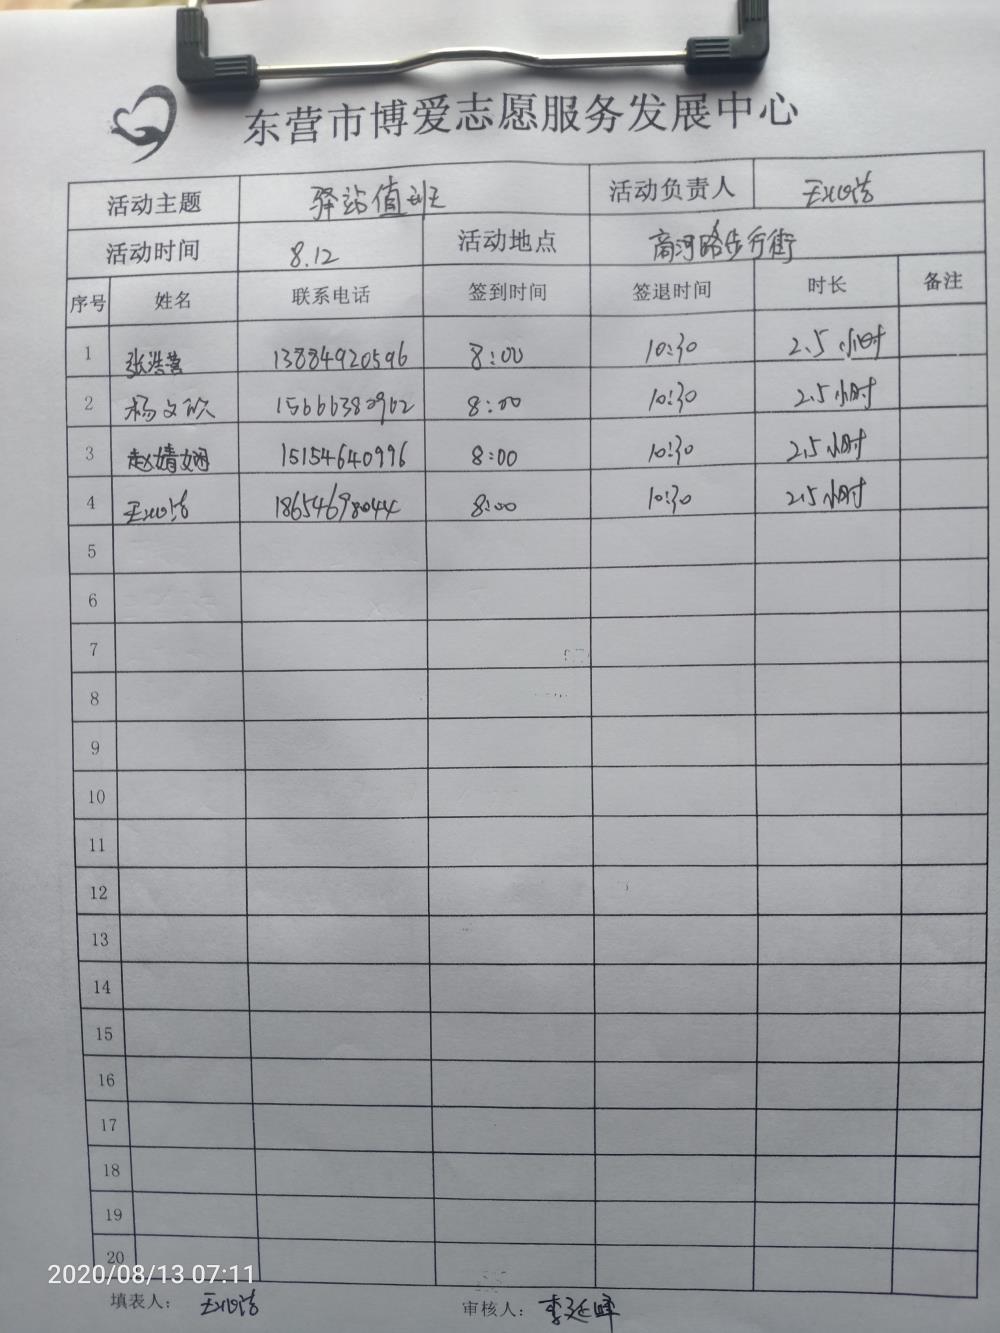 东营市博爱志愿服务发展中心
活动主题 驿站值班 活动负责人
活动时间 8.12 活动地点 商河路步行街
序号 姓名 联系电话 签到时间 签退时间 时长 备注
1 张浩营 13884920596 8:00 10:30 2.5小时
2 杨文欣 15666380902 8:00 10:30 2.5小时
3 赵婧娴 15154640996 8:00 10:30 2.5小时
4 18654698044 8:00 10:30 2.5小时
5
6
7
8
9
10
11
12
13
14
15
16
17
18
19
20
2020/08/13 07:11
填表人: 审核人: 李延峰